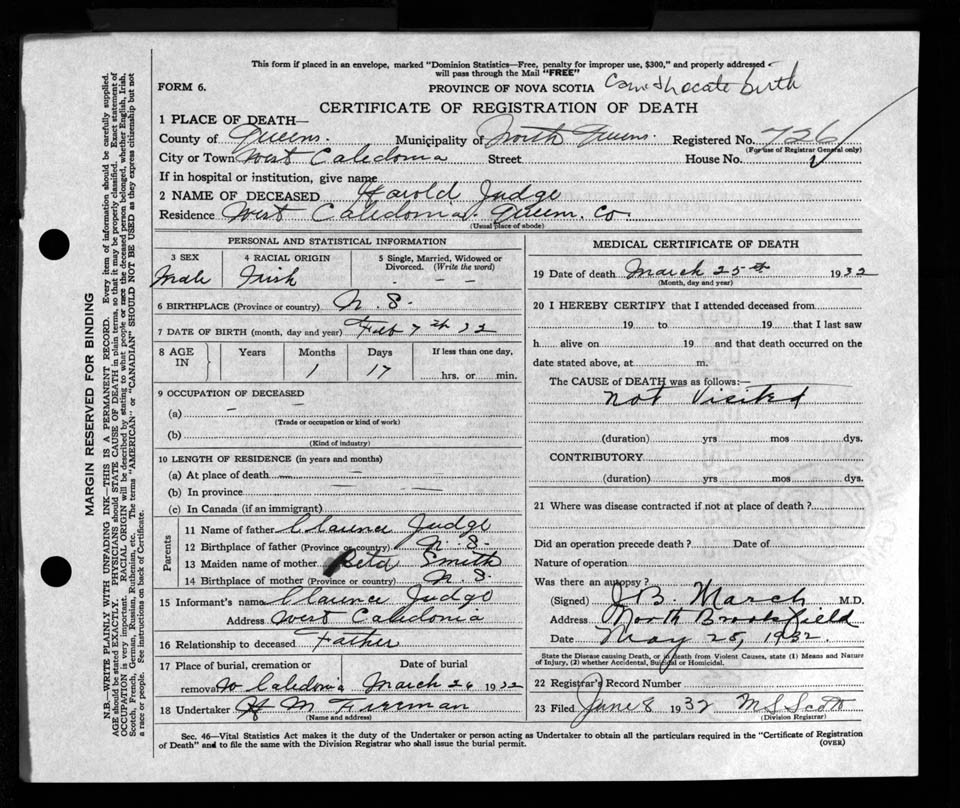 This form if placed in an envelope, marked "Dominion Statistics—Free, penalty for improper use, $300," and properly addressed
will pass through the Mail "FREE"
FORM 6.
PROVINCE OF NOVA SCOTIA
birth
CERTIFICATE OF REGISTRATION OF DEATH
1 PLACE OF DEATH—
County of Queens. Municipality of North Queens. Registered No. 726
(For use of Registrar General only)
City or Town West Caledonia Street House No.
If in hospital or institution, give name
2 NAME OF DECEASED Harold Judge
Residence West Caledonia. Queens. Co.
(Usual place of abode)
PERSONAL AND STATISTICAL INFORMATION
3 SEX 4 RACIAL ORIGIN 5 Single, Married, Widowed or Divorced. (Write the word)
Male Irish - - -
6 BIRTHPLACE (Province or country) N. S.
7 DATE OF BIRTH (month, day and year) Feb 7th 32
8 AGE IN Years Months Days If less than one day,
1 17 hrs. or min.
9 OCCUPATION OF DECEASED
(a) – –
(Trade or occupation or kind of work)
(b)
(Kind of industry)
10 LENGTH OF RESIDENCE (in years and months)
(a) At place of death
(b) In province
(c) In Canada (if an immigrant)
Parents
11 Name of father Clarence Judge
12 Birthplace of father (Province or country) N. S.
13 Maiden name of mother Reta Smith
14 Birthplace of mother (Province or country) N. S.
15 Informant's name Clarence Judge
Address West Caledonia
16 Relationship to deceased Father
17 Place of burial, cremation or removal Date of burial
W Caledonia March 26 1932
18 Undertaker H M
(Name and address)
MEDICAL CERTIFICATE OF DEATH
19 Date of death March 25th 1932
(Month, day and year)
20 I HEREBY CERTIFY that I attended deceased from
19 to 19 that I last saw
h alive on 19 and that death occurred on the
date stated above, at m.
The CAUSE of DEATH was as follows:—
Not Visited
(duration) yrs mos dys.
CONTRIBUTORY
(duration) yrs mos dys.
21 Where was disease contracted if not at place of death?
Did an operation precede death? Date of
Nature of operation
Was there an autopsy?
(Signed) J B. March M.D.
Address North Brookfield
Date May 25, 1932.
State the Disease causing Death, or in death from Violent Causes, state (1) Means and Nature
of Injury, (2) whether Accidental, Suicidal or Homicidal.
22 Registrar's Record Number
23 Filed June 8 1932 M S Scott
(Division Registrar)
Sec. 46—Vital Statistics Act makes it the duty of the Undertaker or person acting as Undertaker to obtain all the particulars required in the "Certificate of Registration
of Death" and to file the same with the Division Registrar who shall issue the burial permit.
(OVER)
MARGIN RESERVED FOR BINDING
N.B.—WRITE PLAINLY WITH UNFADING INK—THIS IS A PERMANENT RECORD. Every item of information should be carefully supplied.
AGE should be stated EXACTLY. PHYSICIANS should STATE CAUSE OF DEATH in plain terms, so that it may be properly classified. Exact statement of
OCCUPATION is very important. RACIAL ORIGIN will be described by stating to what people or race the deceased person belonged, whether English, Irish,
Scotch, French, German, Russian, Ruthenian, etc. The terms "AMERICAN" or "CANADIAN" SHOULD NOT BE USED as they express citizenship but not
a race or people. See instructions on back of Certificate.